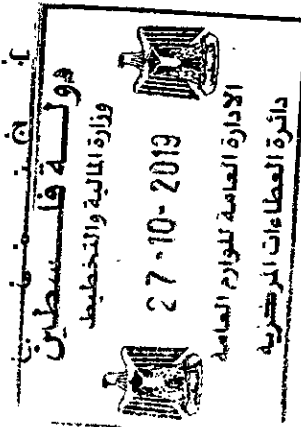 دولة فلسطين
وزارة المالية والتخطيط
27-10-2019
الادارة العامة للوازم العامة
دائرة العطاءات المركزية